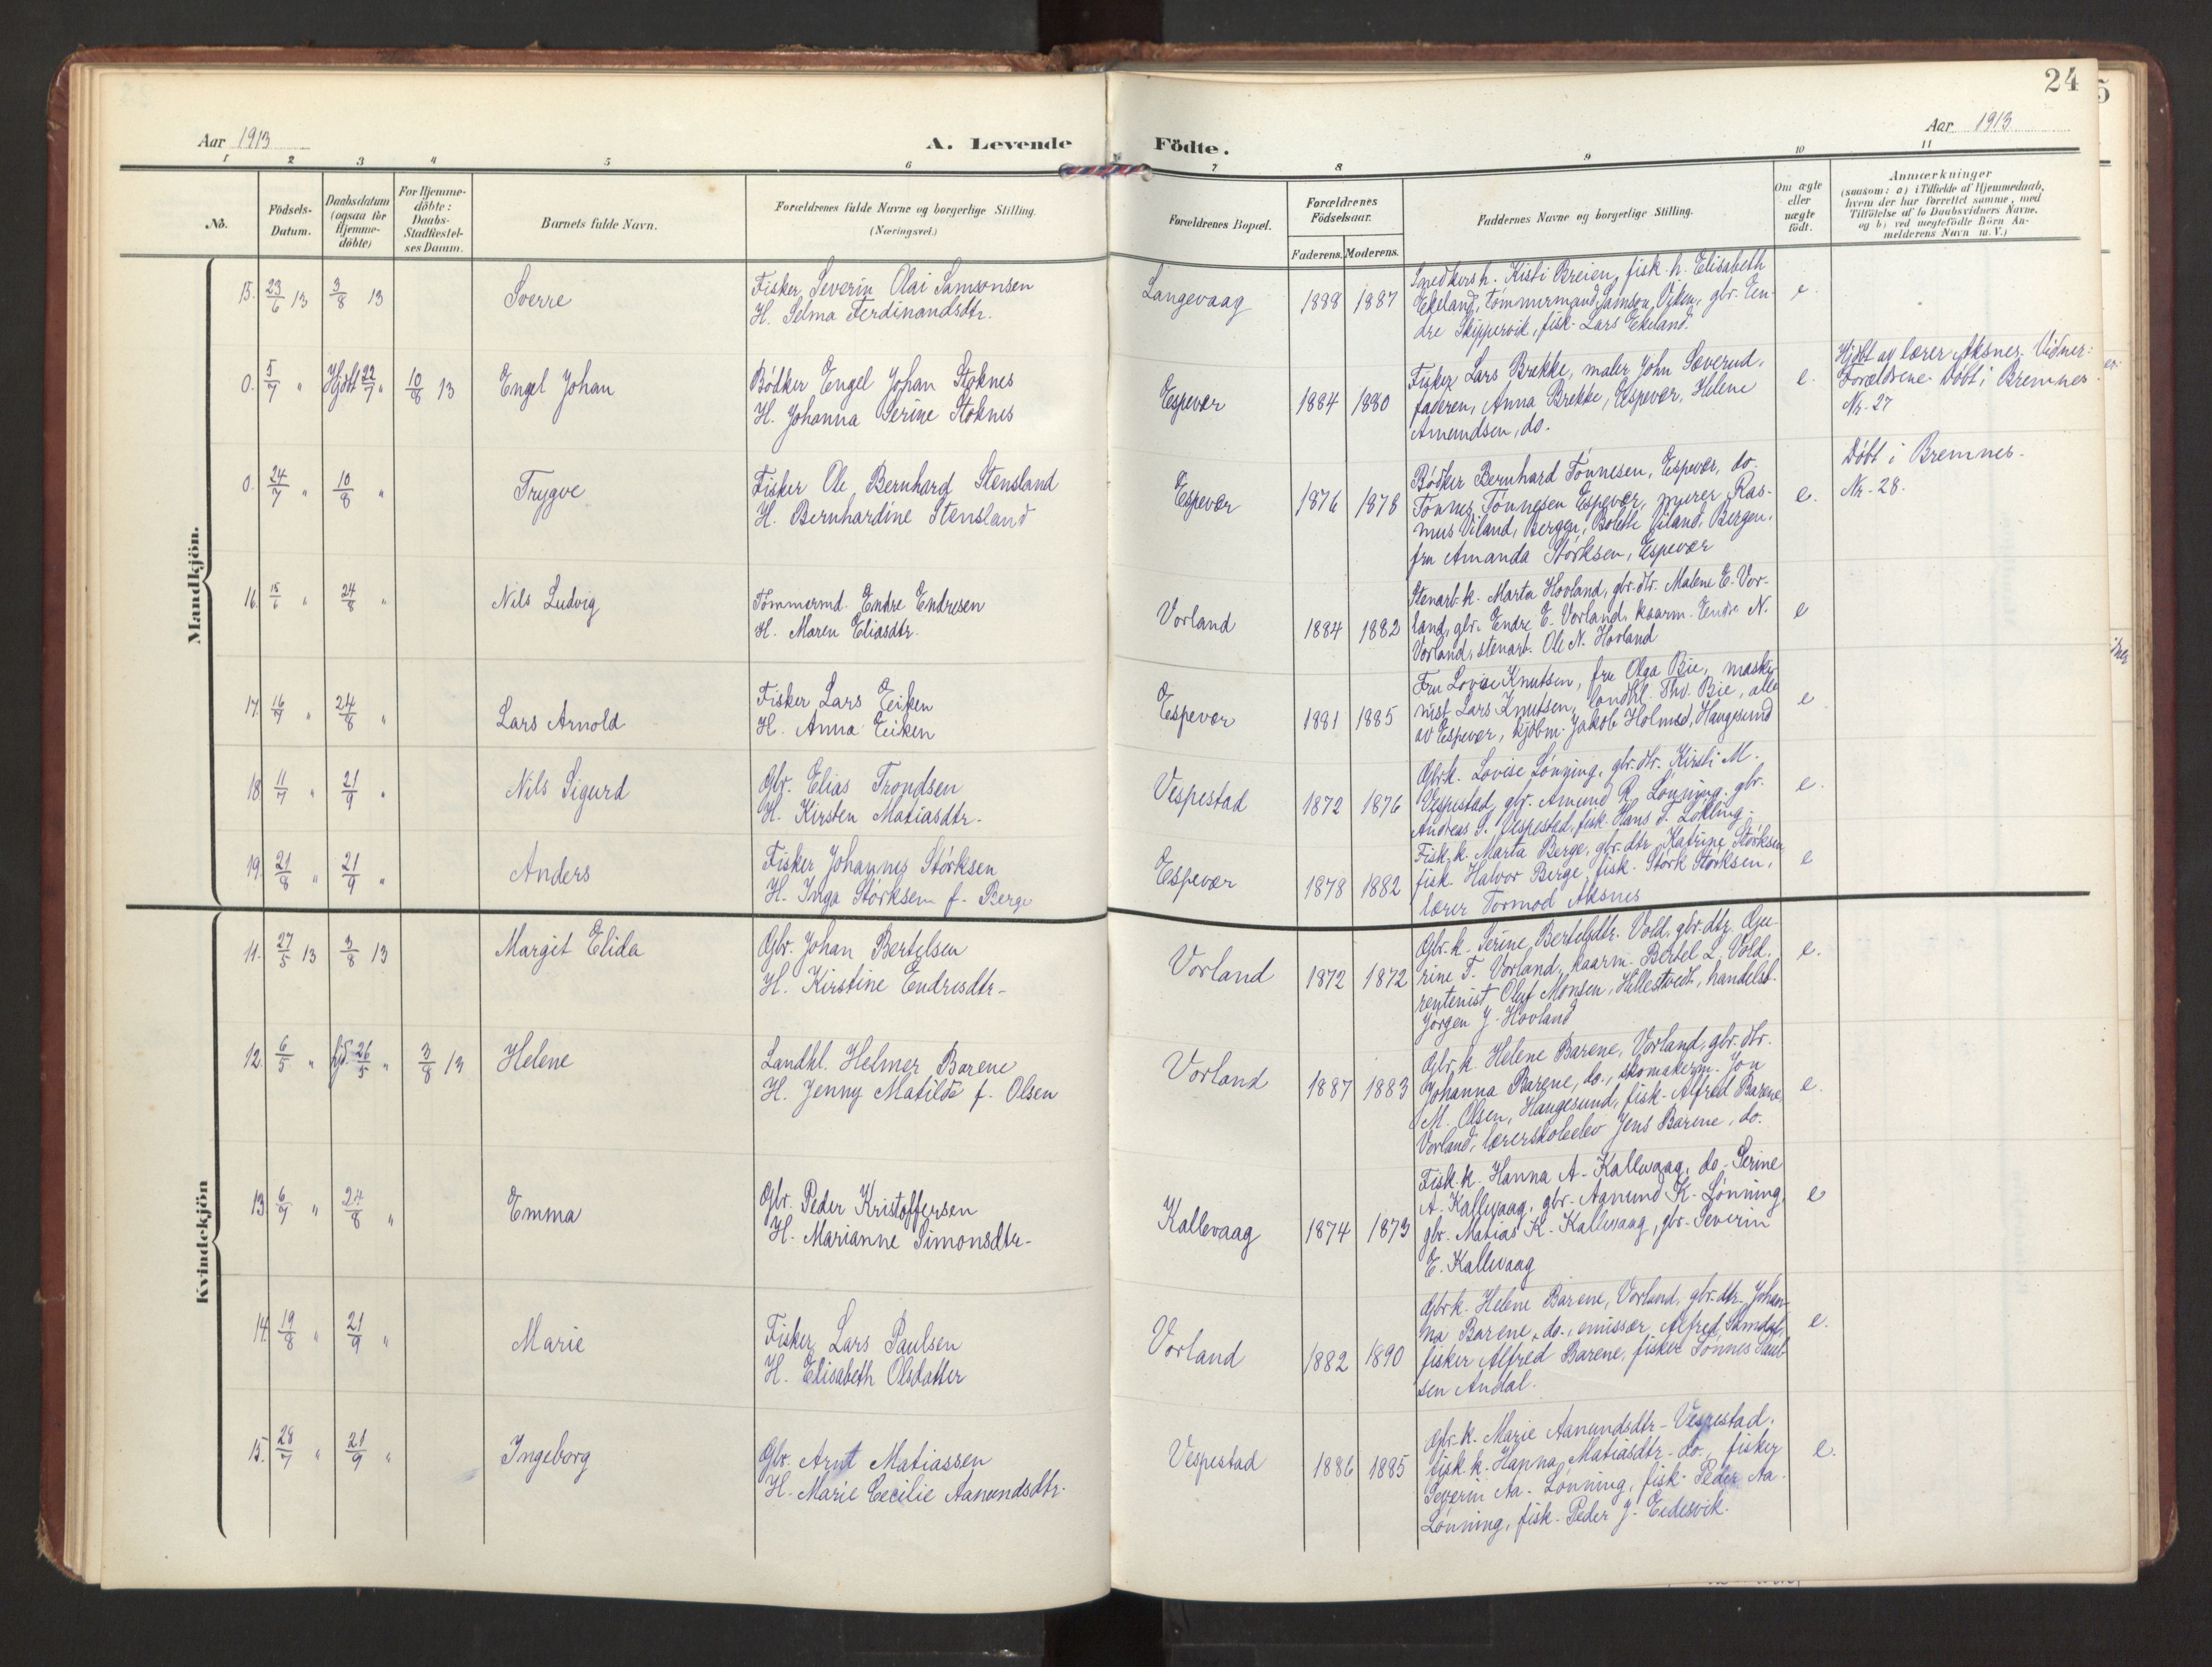 24
Aar 1913
A. Levende
Födte.
Aar 1913
1 2 3 4 5 6 7 8 9 10 11
No.
Födsels-
Datum.
Daabsdatum
(ogsaa for
Hjemme-
döbte)
For Hjemme-
döbte:
Daabs-
Stadfæstel-
ses Datum.
Barnets fulde Navn.
Forældrenes fulde Navne og borgerlige Stilling.
(Næringsvei.)
Forældrenes Bopæl.
Forældrenes
Födselsaar.
Faderens. Moderens.
Faddernes Navne og borgerlige Stilling.
Om ægte
eller
uægte
födt.
Anmærkninger
(saasom: a) i Tilfælde af Hjemmedaab,
hvem der har forrettet samme, med
Tilföielse af to Daabsvidners Navne,
og b) ved uægtefödte Börn An-
melderens Navn m. V.)
Mandkjön.
15. 23/6 13 3/8 13
Sverre
Fisker Severin Olai Samsonsen
H. Selma Ferdinandsdtr.
Langevaag
1888 1887
Snedkersh. Kisti Breien, fisk.h. Elisabeth
Ekeland, Tømmermand Samson Viken, gbr. En-
dre Skippervik, fisk. Lars Ekeland.
e.
0. 5/7 " Hjdbt 22/7 " 10/8 13
Engel Johan
Bödker Engel Johan Stoknes
H. Johanna Serine Stoknes
Espevær
1884 1880
Fisker Lars Brekke, maler John Saverud,
faderen, Anna Brekke, Espevær, Helene
Amundsen, do.
e.
Hjdbt av lærer Aksnes. Vidner:
Forældrene. Döbt i Bremnes
Nr. 27
0. 24/7 " 10/8 "
Trygve
Fisker Ole Bernhard Stensland
H. Bernhardine Stensland
Espevær
1876 1878
Bödker Bernhard Tönnesen, Espevær, do.
Tönnes Tönnesen Espevær, murer Ras-
mus Viland, Bergen, Bolette Viland, Bergen,
fru Amanda Störksen, Espevær
e.
Döbt i Bremnes.
Nr. 28.
16. 15/6 " 24/8 "
Nils Ludvig
Tömmermd. Endre Endresen
H. Maren Eliasdtr.
Vorland
1884 1882
Stenarb.k. Marta Hovland, gbr.dtr. Malene E. Vor-
land, gbr. Endre E. Vorland, kaarm. Endre N.
Vorland, stenarb. Ole N. Hovland
e
17. 16/7 " 24/8 "
Lars Arnold
Fisker Lars Eiken
H. Anna Eiken
Espevær
1881 1885
Fru Lovise Knutsen, fru Olga Bie, maski-
nist Lars Knutsen, landhl. Thv. Bie, alle
av Espevær, kjöbm. Jakob Holmed, Haugesund
e
18 11/7 " 21/9 "
Nils Sigurd
Gbr. Elias Trondsen
H. Kirsten Matiasdtr.
Vespestad
1872 1876
Gbrk. Lovise Lönning, gbr.dtr. Kirsti M.
Vespestad, gbr. Amund R. Lönning, gbr.
Andreas S. Vespestad, fisk. Hans T. Lökling.
e.
19. 21/8 " 21/9 "
Anders
Fisker Johannes Störksen
H. Inga Störksen f. Berge
Espevær
1878 1882
Fisk.k. Marta Berge, gbr.dtr. Katrine Störksen
fisk. Halvor Berge, fisk. Störk Störksen,
lærer Tormod Aksnes
e
Kvindekjön
11. 27/5 13 3/8 13
Margit Elida
Gbr. Johan Bertelsen
H. Kirstine Endresdtr.
Vorland
1872 1872
Gbr.k. Serine Bertelsdtr. Vold, gbr.dtr. Gu-
rine T. Vorland, kaarm. Bertel L. Vold,
rentenist Oluf Monsen, Hillestvedt, handelsb.
Jörgen J. Hovland
e.
12. 6/5 " hjd. 26/5 " 3/8 13
Helene
Landhl. Helmer Barene
H. Jenny Matilde f. Olsen
Vorland
1887 1883
Gbr.k. Helene Barene, Vorland, gbr.dtr.
Johanna Barene, do., skomakerm. Jon
M. Olsen, Haugesund, fisk. Alfred Barene,
Vorland, lærerskoleelev Jens Barene, do.
e.
13. 6/7 " 24/8 "
Emma
Gbr. Peder Kristoffersen
H. Marianne Simonsdtr.
Kallevaag
1874 1873
Fisk.k. Hanna A. Kallevaag, do. Serine
A. Kallevaag, gbr. Aanund K. Lönning,
gbr. Matias K. Kallevaag, gbr. Severin
E. Kallevaag
e
14. 19/8 " 21/9 "
Marie
Fisker Lars Paulsen
H. Elisabeth Olsdatter
Vorland
1882 1890
Gbrk. Helene Barene, Vorland, gbr.dtr. Johan-
na Barene, do., emissær Alfred
fisker Alfred Barene, fisker Tönnes Paul-
sen Andal.
e.
15. 28/7 " 21/9 "
Ingeborg
Gbr. Arnt Matiassen
H. Marie Cecilie Aanundsdtr.
Vespestad
1886 1885
Gbr.k. Marie Aanundsdtr. Vespestad,
fisk.k. Hanna Matiasdtr. do., fisker
Severin Aa. Lönning, fisk. Peder Aa.
Lönning, fisk. Peder J. Eidesvik.
e.